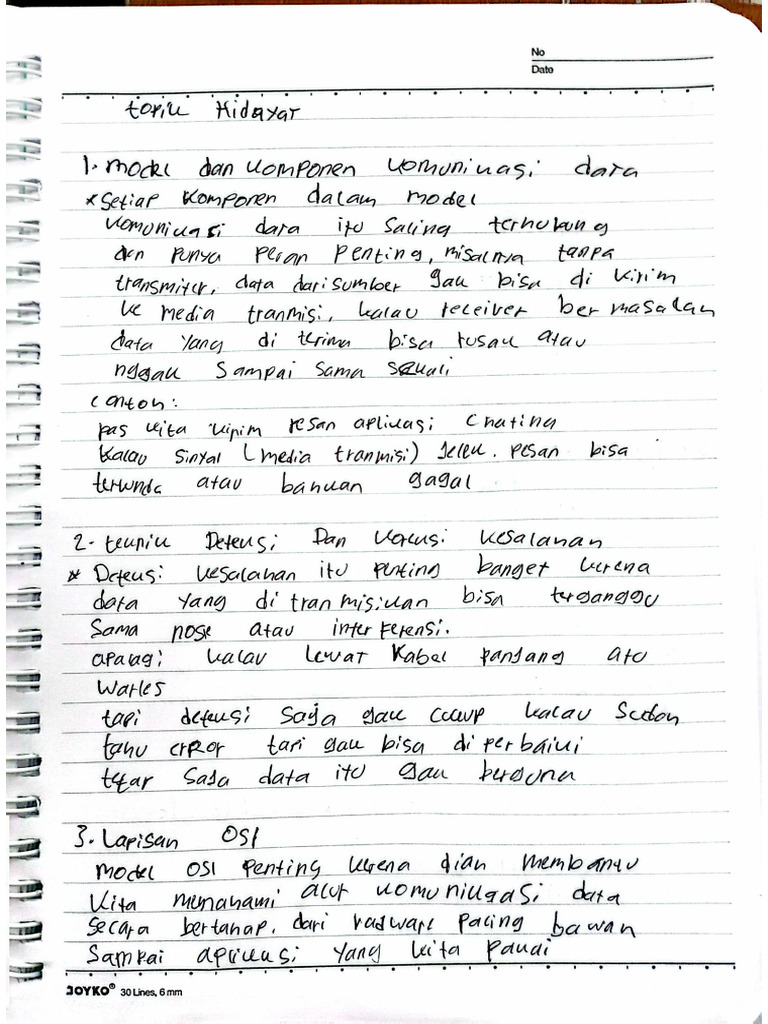 No
Date
topik Hidayat
1. model dan komponen komunikasi data
* Setiap komponen dalam model
komunikasi data itu saling terhubung
dan punya peran penting, misalnya tanpa
transmiter, data dari sumber gak bisa di kirim
ke media tranmisi, kalau receiver ber masalah
data yang di terima bisa rusak atau
nggak sampai sama sekali
contoh:
pas kita kirim pesan aplikasi chating
kalau sinyal (media tranmisi) jelek. pesan bisa
terunda atau bahkan gagal
2. teknik Deteksi Dan koreksi kesalahan
* Deteksi kesalahan itu penting banget kerena
data yang di tranmisikan bisa terganggu
sama nose atau interferensi.
apalagi kalau lewat kabel panjang ato
warles
tapi deteksi saja gak cukup kalau
tahu error tapi gak bisa di perbaiki
tetap saja data itu gak berguna
3. Lapisan OSI
model OSI penting kerena dian membantu
kita memahami alur komunikasi data
secara bertahap, dari radware paling bawah
sampai aplikasi yang kita pakai
JOYKO® 30 Lines, 6 mm